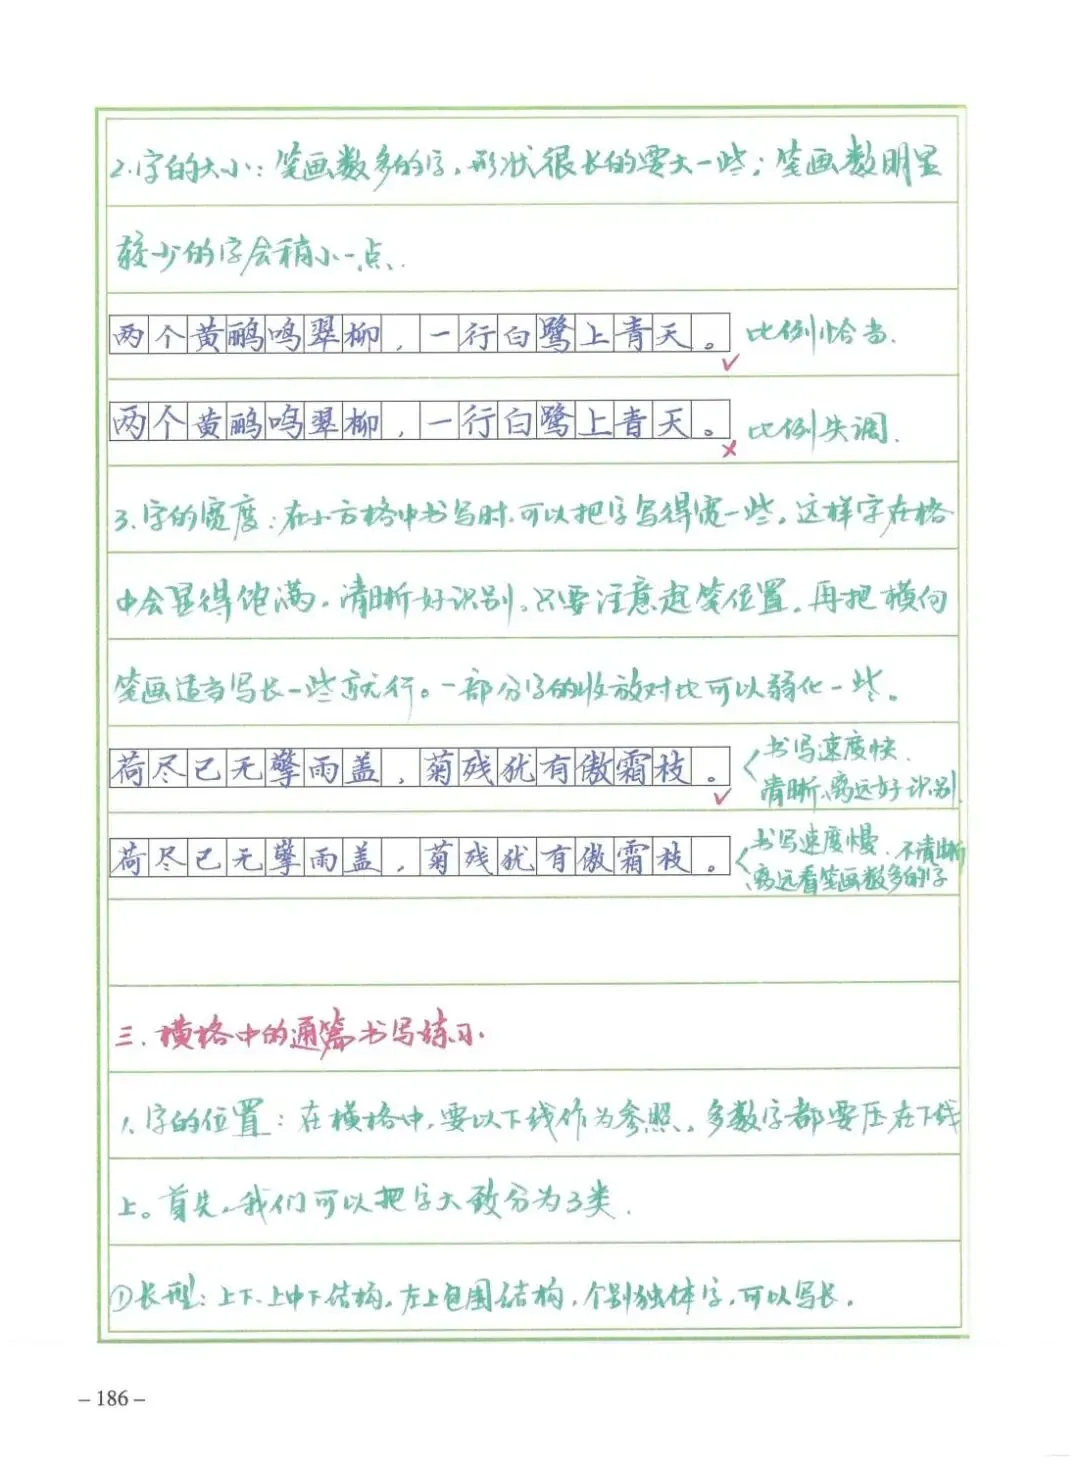 2.字的大小：笔画数多的字，形状很长的要大一些；笔画数明显
较少的字会稍小一点.
两个黄鹂鸣翠柳，一行白鹭上青天。✓ 比例恰当.
两个黄鹂鸣翠柳，一行白鹭上青天。× 比例失调.
3.字的宽度：在小方格中书写时.可以把字写得宽一些，这样字在格
中会显得饱满，清晰好识别。只要注意起笔位置，再把横向
笔画适当写长一些就行。一部分字的收放对比可以弱化一些。
荷尽已无擎雨盖，菊残犹有傲霜枝。✓
书写速度快.
清晰、离远好识别.
荷尽已无擎雨盖，菊残犹有傲霜枝。
书写速度慢.不清晰
离远看笔画数多的字
三.横格中的通篇书写练习.
1.字的位置：在横格中，要以下线作为参照。多数字都要压在下线
上。首先，我们可以把字大致分为3类.
①长型：上下、上中下结构，左上包围结构，个别独体字，可以写长.
–186–